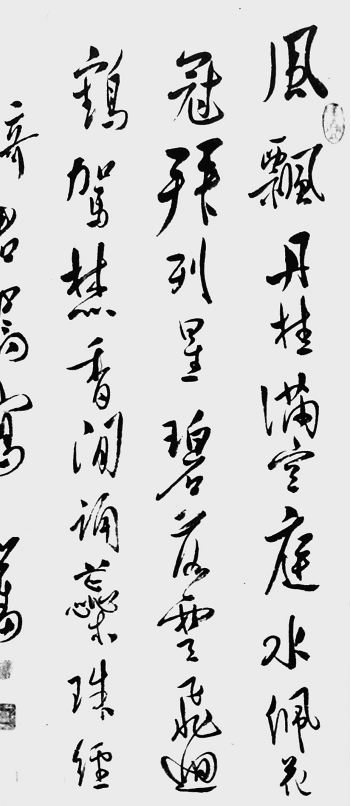 風飄丹桂滿空庭水佩花
冠拜列星碧落雲飛迴
鶴駕焚香閒誦蘂珠經